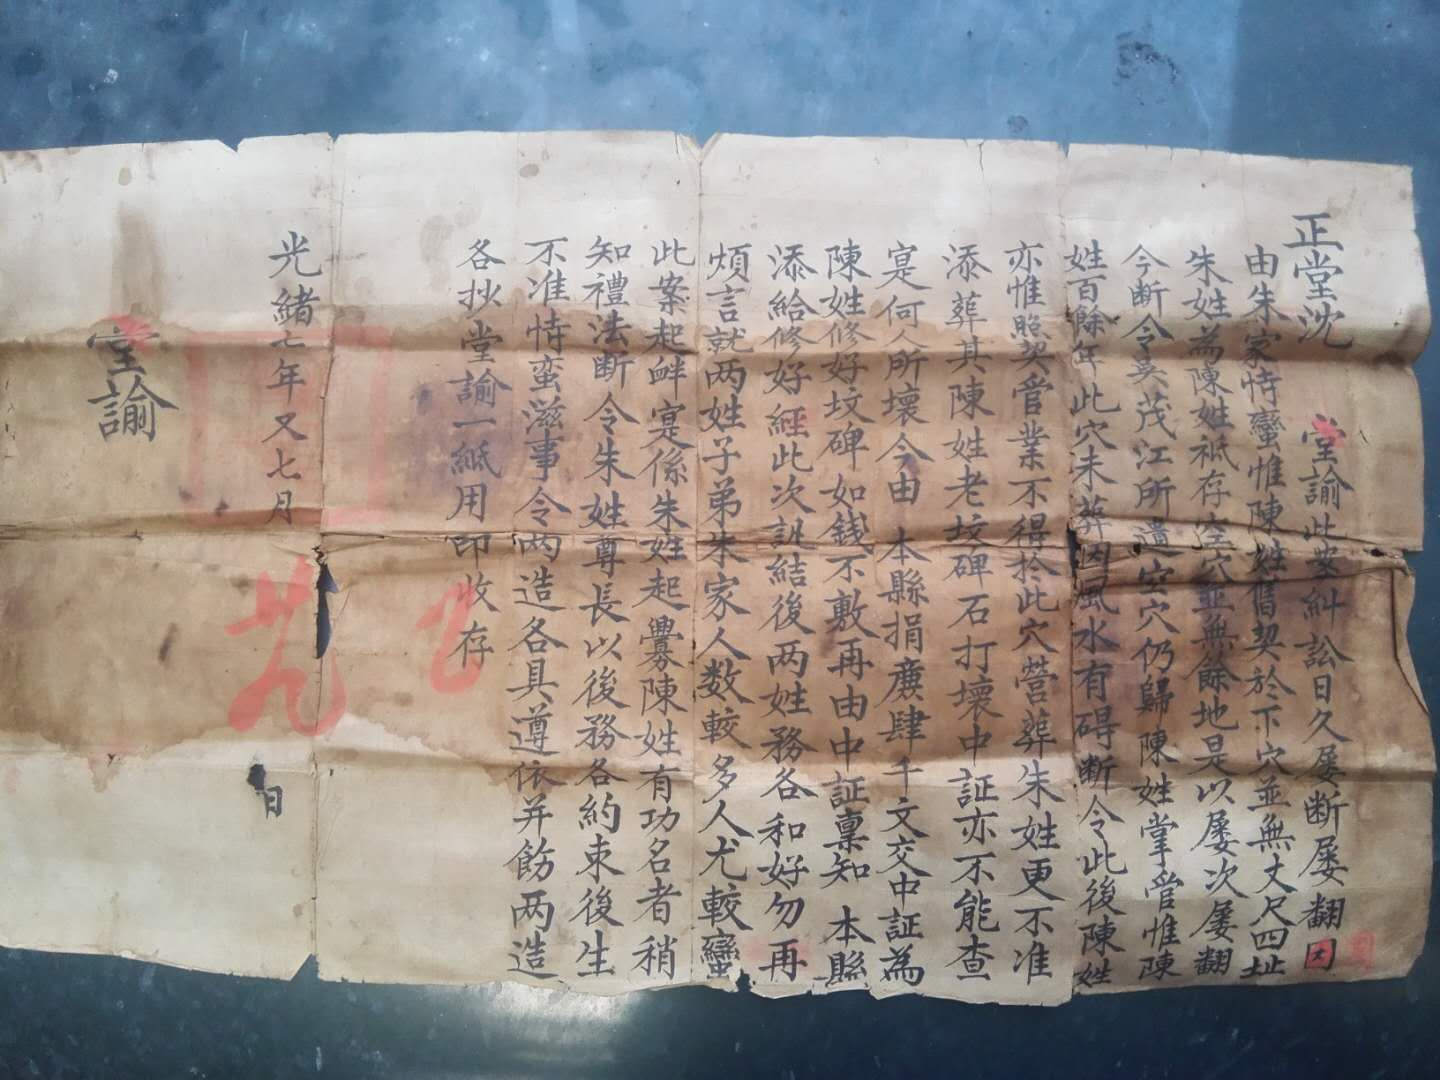 正堂沈　堂諭此案糾訟日久屡断屡翻因
由朱家恃蠻惟陳姓舊契於下穴並無丈尺四址
朱姓為陳姓祗存空穴並無餘地是以屡次屡翻
今断令吳茂江所遺空穴仍歸陳姓掌管惟陳
姓百餘年此穴未葬因風水有碍断令此後陳姓
亦惟照契管業不得於此穴營葬朱姓更不准
添葬其陳姓老坟碑石打壞中証亦不能查
寔何人所壞今由　本縣捐廉肆千文交中証為
陳姓修好坟碑如錢不敷再由中証禀知　本縣
添給修好經此次訊結後两姓務各和好勿再
煩言就两姓子弟朱家人数較多人尤較蠻
此案起衅寔係朱姓起釁陳姓有功名者稍
知禮法断令朱姓尊長以後務各約束後生
不准恃蛮滋事令两造各具遵依并飭两造
各抄堂諭一紙用印收存
光緒七年又七月　日
堂諭